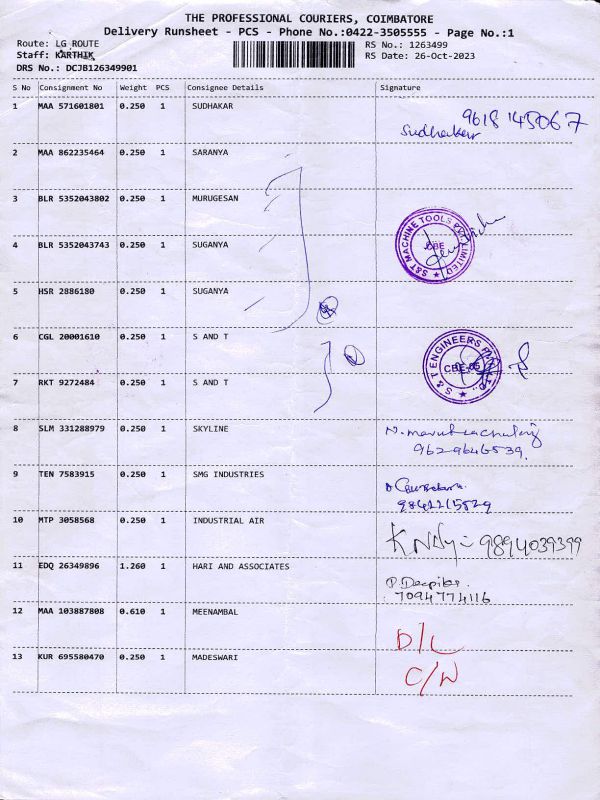 THE PROFESSIONAL COURIERS, COIMBATORE
Delivery Runsheet - PCS - Phone No.:0422-3505555 - Page No.:1
Route: LG ROUTE
RS No.: 1263499
Staff: KARTHIK
RS Date: 26-Oct-2023
DRS No.: DCJB126349901
S No Consignment No Weight PCS Consignee Details Signature
1 MAA 571601801 0.250 1 SUDHAKAR
9618145067
Sudhakar
2 MAA 862235464 0.250 1 SARANYA
3 BLR 5352043802 0.250 1 MURUGESAN
S&T MACHINE TOOLS PVT LIMITED
CBE
4 BLR 5352043743 0.250 1 SUGANYA
5 HSR 2886180 0.250 1 SUGANYA
6 CGL 20001610 0.250 1 S AND T
S & T ENGINEERS PVT LTD
CBE-05
7 RKT 9272484 0.250 1 S AND T
8 SLM 331288979 0.250 1 SKYLINE
9629646539.
9 TEN 7583915 0.250 1 SMG INDUSTRIES
10 MTP 3058568 0.250 1 INDUSTRIAL AIR
9894039399
11 EDQ 26349896 1.260 1 HARI AND ASSOCIATES
P. Deepika
7094774116
12 MAA 103887808 0.610 1 MEENAMBAL
D/L
13 KUR 695580470 0.250 1 MADESWARI
C/N